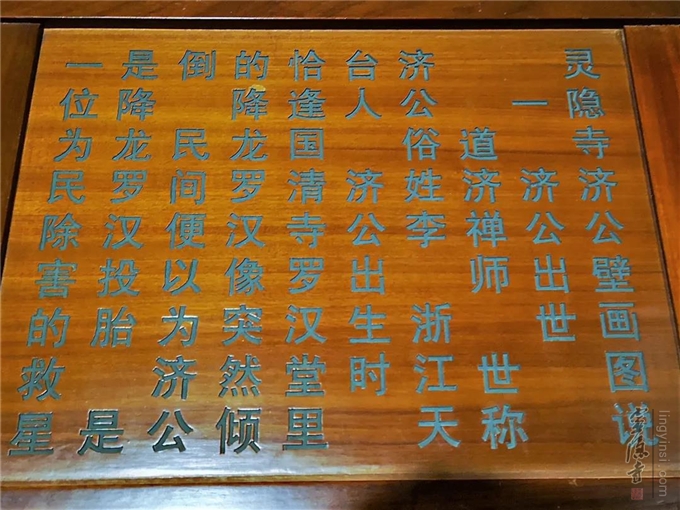 灵隐寺济公壁画图说
一 济公出世
道济禅师 世称
济公 俗姓李 浙江天
台人 济公出生时
恰逢国清寺罗汉堂里
的降龙罗汉像突然倾
倒 民间便以为济公
是降龙罗汉投胎 是
一位为民除害的救星
灵隐寺
lingyinsi.com